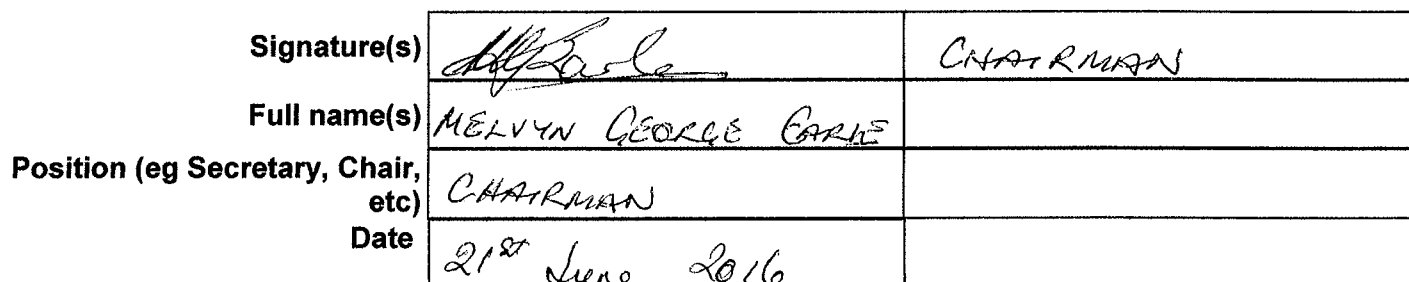 Signature(s) CHAIRMAN
Full name(s) MELVYN GEORGE EARLE
Position (eg Secretary, Chair,
etc) CHAIRMAN
Date
21st June 2016